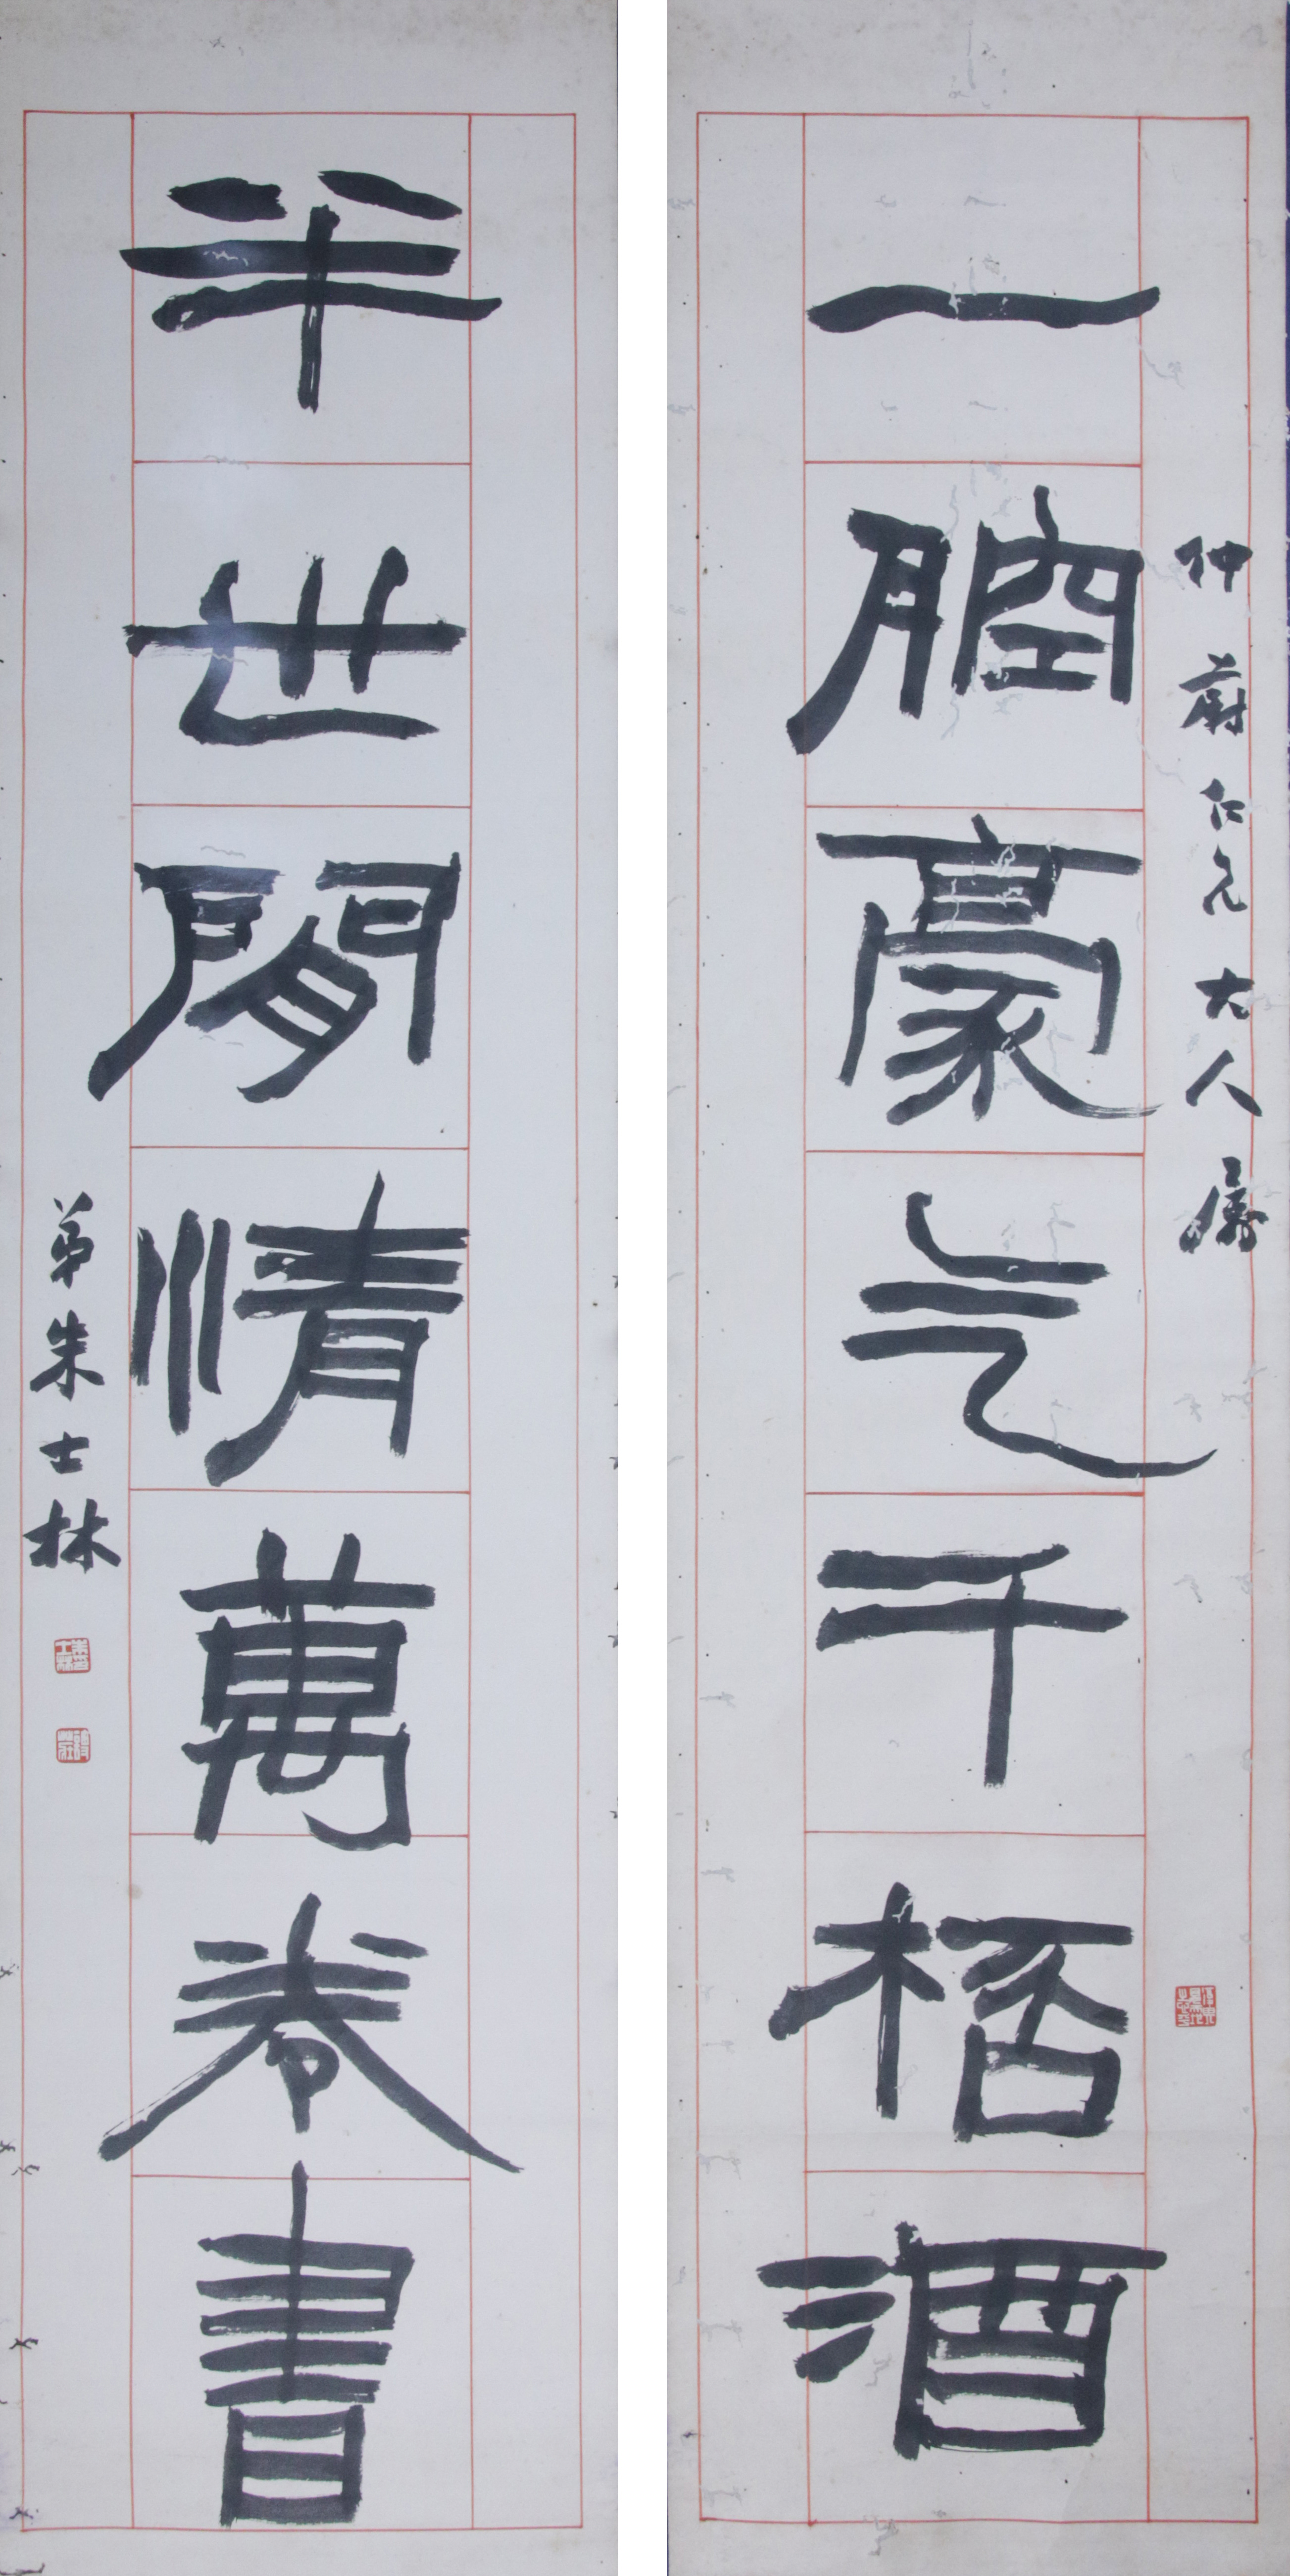 仲蔚仁兄大人屬
一腔豪气千桮酒
半世閒情萬卷書
弟朱士林